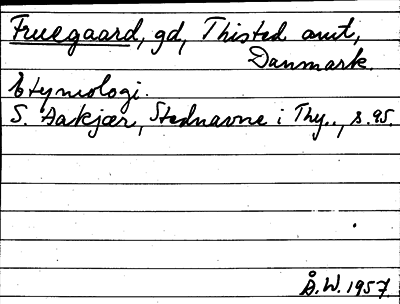 Fruegaard, gd, Thisted amt,
Danmark.
Etymologi.
S. Aakjær, Stednavne i Thy., s. 95.
Å.W. 1957